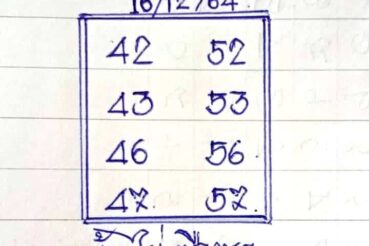 16/12/64
42 52
43 53
46 56.
47. 57.